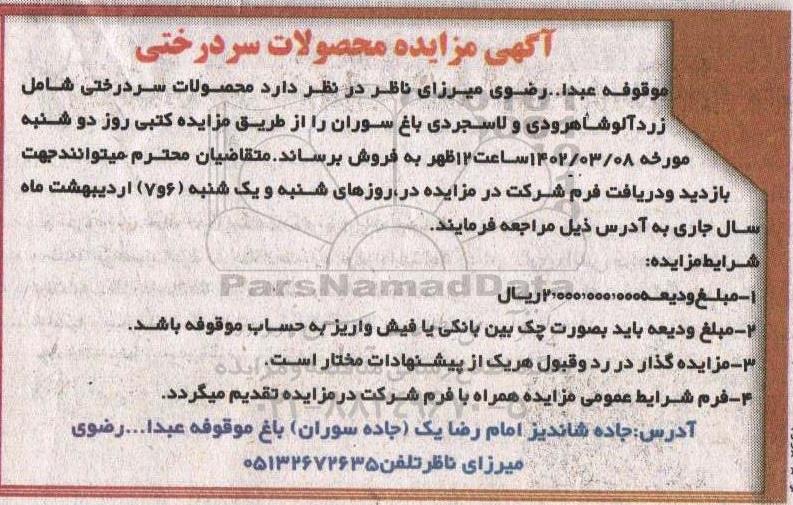 آگهی مزایده محصولات سردرختی
موقوفه عبدا..رضوی میرزای ناظر در نظر دارد محصولات سردرختی شامل
زردآلوشاهرودی و لاسجردی باغ سوران را از طریق مزایده کتبی روز دو شنبه
مورخه ۱۴۰۲/۰۳/۰۸ساعت۱۲ظهر به فروش برساند.متقاضیان محترم میتوانندجهت
بازدید ودریافت فرم شرکت در مزایده در،روزهای شنبه و یک شنبه (۶و۷) اردیبهشت ماه
سال جاری به آدرس ذیل مراجعه فرمایند.
شرایط‌مزایده:
۱-مبلغ‌ودیعه۲،۰۰۰،۰۰۰،۰۰۰ریال
ParsNamadData
۲-مبلغ ودیعه باید بصورت چک بین بانکی یا فیش واریز به حساب موقوفه باشد.
۳-مزایده گذار در رد وقبول هریک از پیشنهادات مختار است.
۴-فرم شرایط عمومی مزایده همراه با فرم شرکت درمزایده تقدیم میگردد.
۰۲۱-۸۸۳۴۹۶۷۰-۵
آدرس:جاده شاندیز امام رضا یک (جاده سوران) باغ موقوفه عبدا...رضوی
میرزای ناظرتلفن۰۵۱۳۲۶۷۲۶۳۵